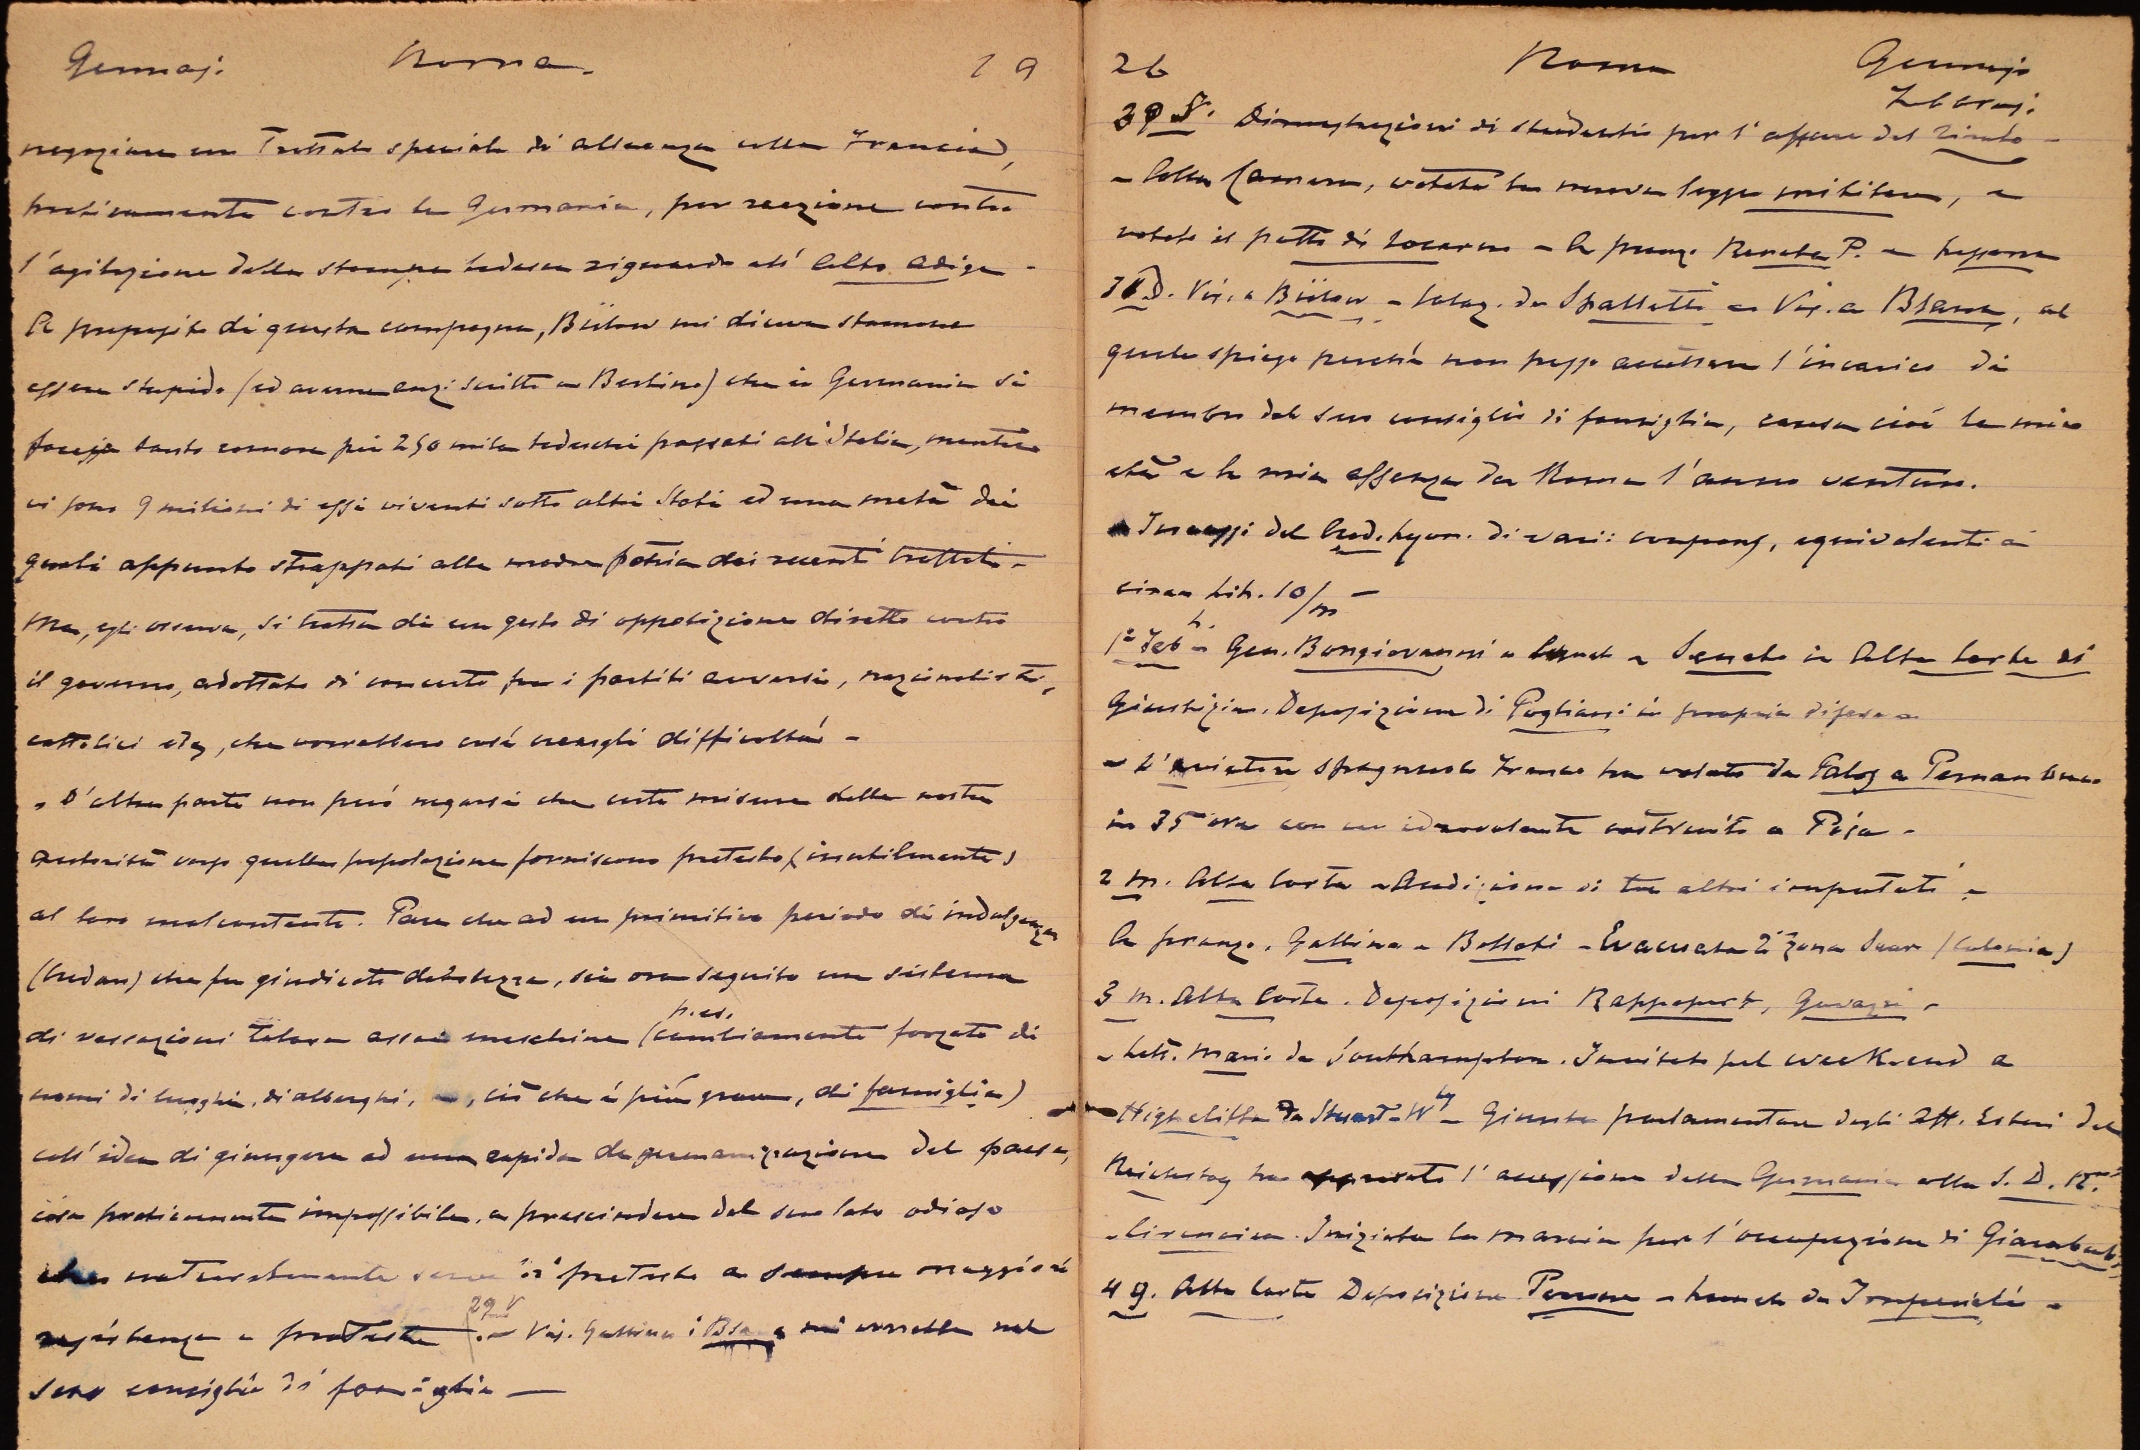 Gennaj. Roma. 19
negoziare un Trattato speciale di alleanza colla Francia,
praticamente contro la Germania, per reazione contro
l'agitazione della stampa tedesca riguardo all'Alto Adige -
A proposito di questa campagna, Bülow mi diceva stamane
essere stupido (ed averne anzi scritto a Berlino) che in Germania si
facesse tanto rumore per 250 mila tedeschi passati all'Italia, mentre
vi sono 9 milioni di essi viventi sotto altri Stati ed una metà dei
quali appunto strappati alla madre patria dai recenti trattati -
Ma, egli osserva, si tratta di un gesto di opposizione diretto contro
il governo, adottato di concerto fra i partiti avversi, nazionalisti,
cattolici etc, che vorrebbero così creargli difficoltà -
- D'altra parte non può negarsi che certe misure delle nostre
autorità verso quella popolazione forniscono pretesto (inutilmente)
al loro malcontento. Pare che ad un primitivo periodo di indulgenza
(Credaro) che fu giudicato debolezza, sia ora seguito un sistema
di vessazioni talora assai meschine (p. es. cambiamento forzato di
nomi di luoghi, di alberghi, e, ciò che è più grave, di famiglia)
coll'idea di giungere ad una rapida degermanizzazione del paese,
cosa praticamente impossibile, a prescindere dal suo lato odioso
che naturalmente serve di pretesto a sempre maggiore
resistenza e proteste. 29 V - Vis. Gallina: mi vorrebbe nel
suo consiglio di famiglia -
26 Roma Gennajo
Febbraj.
30 S. Dimostrazioni di studenti per l'affare del
- Alla Camera, votata la nuova legge militare, e
votato il patto di Locarno - A pranzo Renata P. -
31 D. Vis. a Bülow - Colaz. da Spalletti - Vis. a, al
quale spiego perchè non posso accettare l'incarico di
membro del suo consiglio di famiglia, causa cioè la mia
età e la mia assenza da Roma l'anno venturo.
- Incassi del Cred. Lyon. di varii coupons, equivalenti a
circa Lit. 10/m -
1° Feb. L. - Gen. Bongiovanni a lunch - Senato in Alta Corte di
Giustizia. Deposizione di Pogliani in propria difesa -
- L'aviatore spagnuolo Franco ha volato da Palos a Pernambuco
in 35 ore con un idrovolante costruito a Pisa -
2 M. Alta Corte - Audizione di tre altri imputati -
A pranzo. Gallina e Bollati - Evacuata 2ª zona (Colonia)
3 M. Alta Corte. Deposizioni Rappoport, Gavazzi -
- Lett. Mario da Southampton. Invitato pel week-end a
Highcliffe da Stuart-Wtly - Giunta parlamentare degli Aff. Esteri del
Reichstag ha approvato l'accessione della Germania alla S. D. N.
- Cirenaica. Iniziata la marcia per l'occupazione di Giarabub,
4 G. Alta Corte Deposizione Perrone - Lunch da Imperiali -